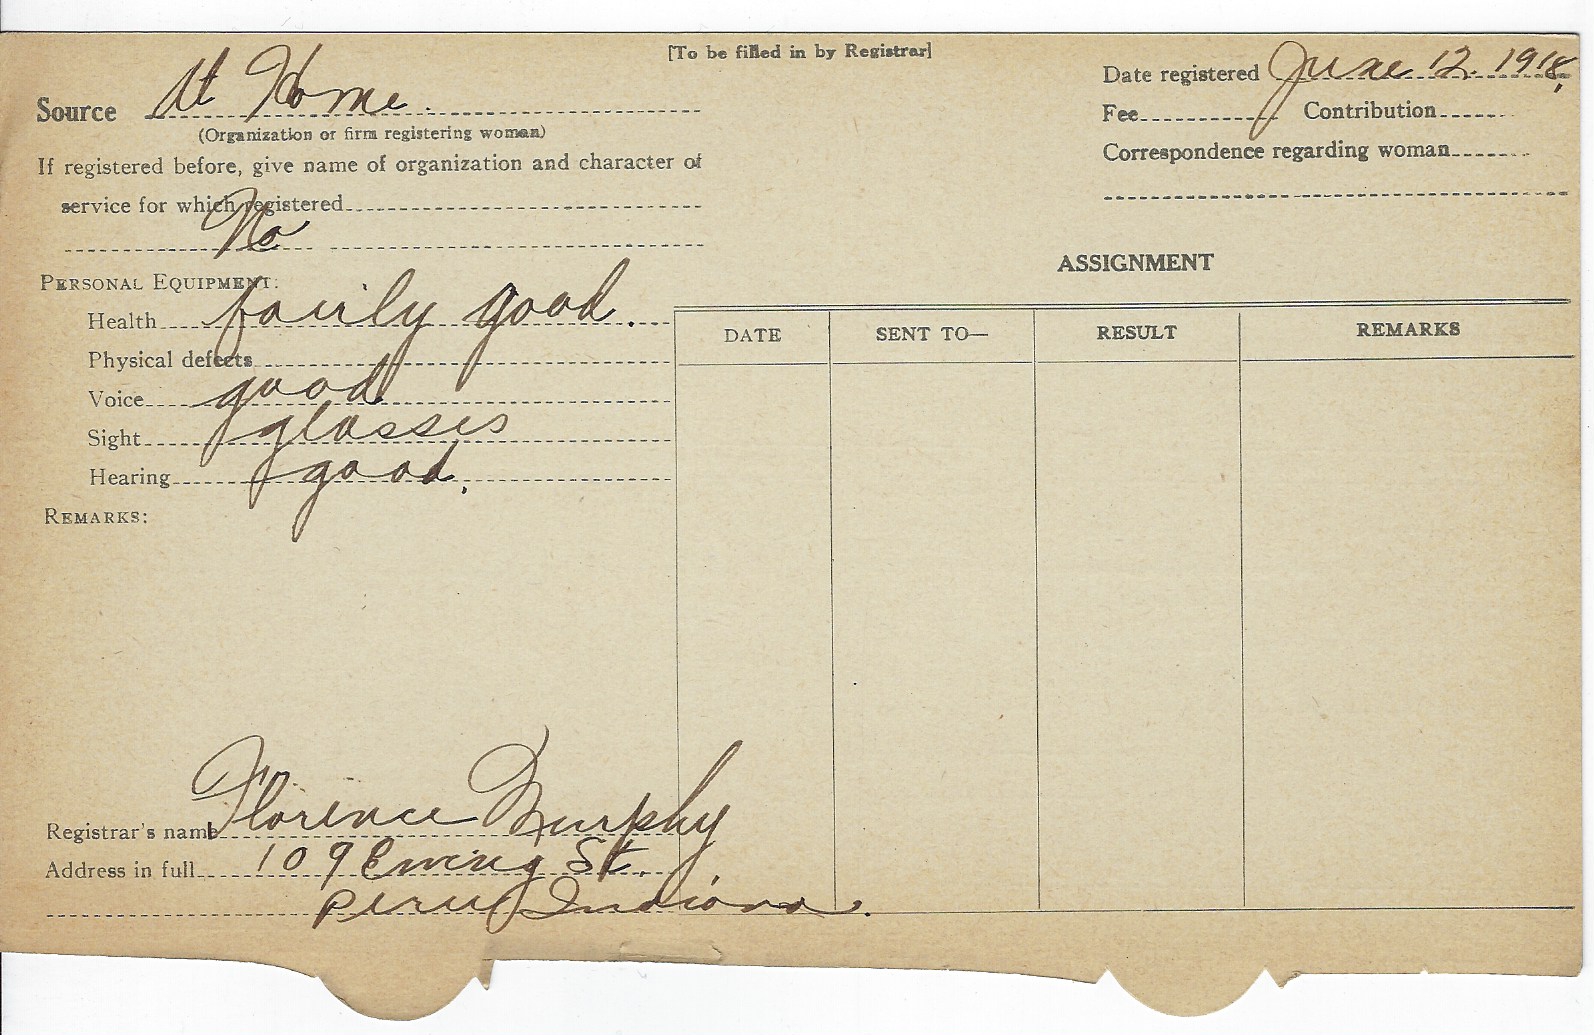 [To be filled in by Registrar]
Source At Home.
(Organization or firm registering woman)
If registered before, give name of organization and character of
service for which registered
No
PERSONAL EQUIPMENT:
Health fairly good.
Physical defects
Voice good
Sight glasses
Hearing good.
REMARKS:
Date registered June 12. 1918.
Fee Contribution
Correspondence regarding woman
ASSIGNMENT
DATE SENT TO— RESULT REMARKS
Registrar's name Florence Murphy
Address in full 109 Ewing St.
Peru Indiana.